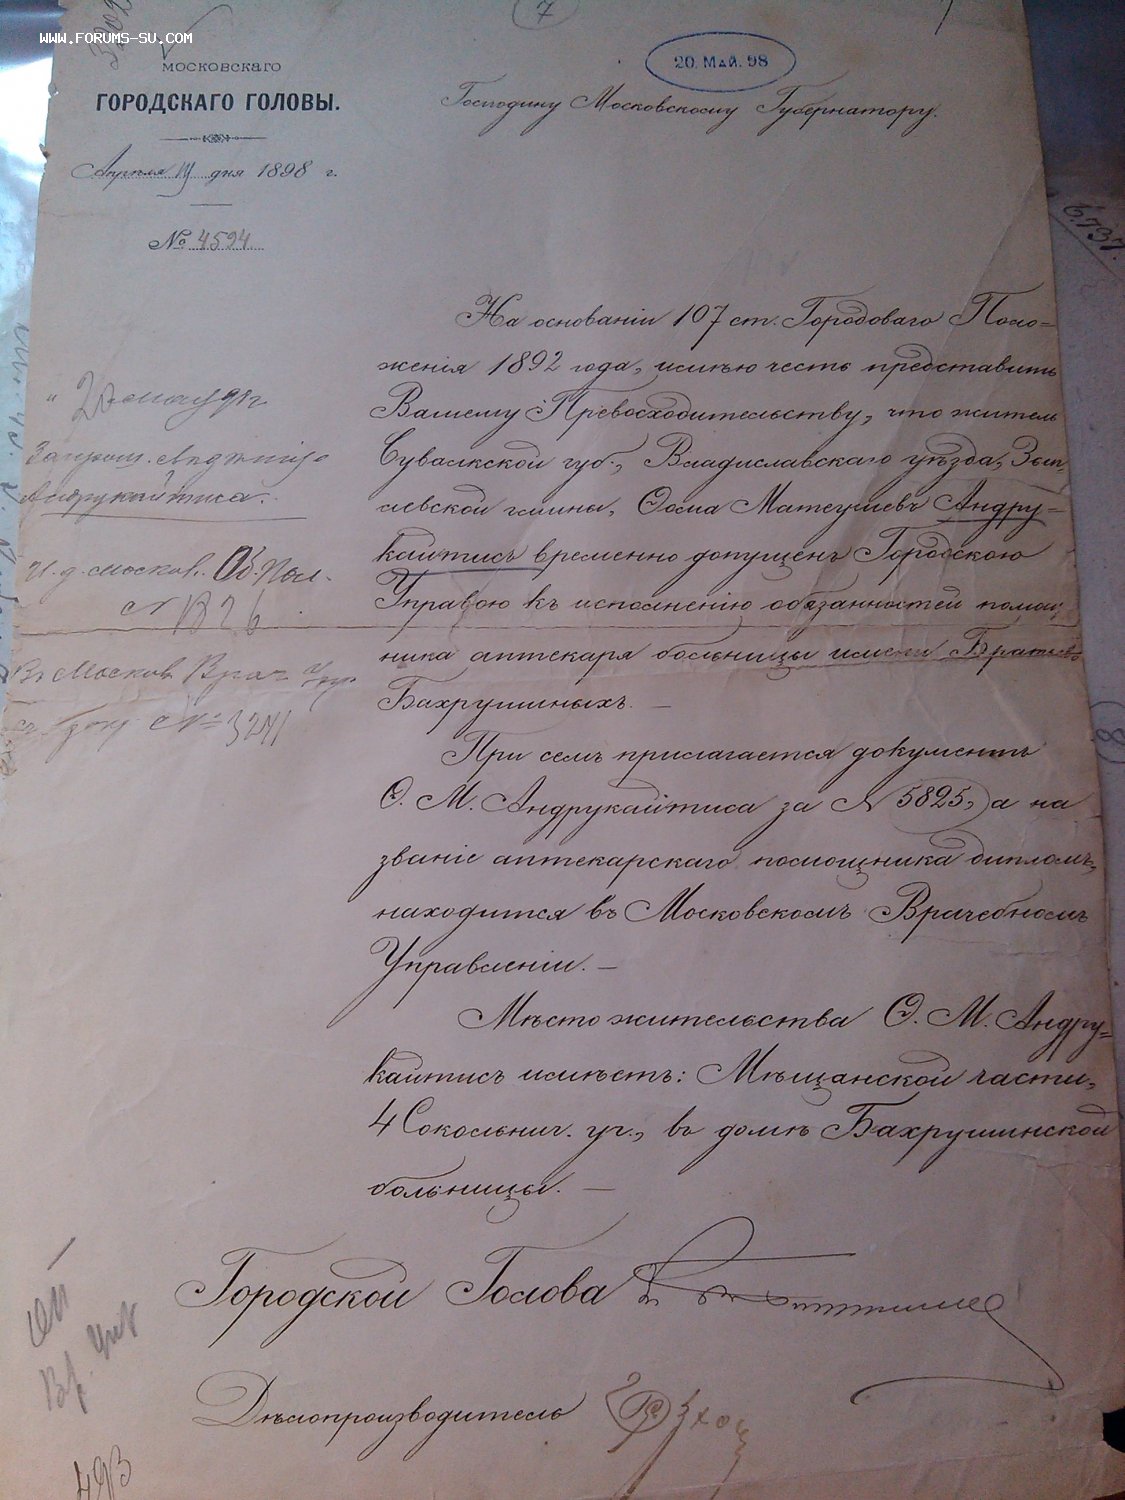 www.forums-su.com
7
МОСКОВСКАГО
ГОРОДСКАГО ГОЛОВЫ.
20. МАЙ. 98
Господину Московскому Губернатору.
Апрѣля дня 1898 г.
№ 4594
6737.
На основаніи 107 ст. Городоваго Поло=
женія 1892 года, имѣю честь представить
Вашему Превосходительству, что житель
Сувалкской губ., Владиславскаго уѣзда, Зып-
левской гмины, Ѳома Матеушевъ Андру=
кайтисъ временно допущенъ Городскою
Управою къ исполненію обязанностей помощ-
ника аптекаря больницы имени Братьевъ
Бахрушиныхъ. —
При семъ прилагается документъ
Ѳ. М. Андрукайтиса за № 5825, а на
званіе аптекарскаго помощника дипломъ,
находится въ Московскомъ Врачебномъ
Управленіи. —
Мѣсто жительства Ѳ. М. Андру=
кайтисъ имѣетъ: Мѣщанской части,
4 Сокольнич. уч., въ домѣ Бахрушинской
больницы. —
Андрукайтиса.
И. д. москов. Об. Пол.
№ 1326
Въ Москов. Врач. Упр.
№ 3241
8
Городской Голова
Дѣлопроизводитель
493